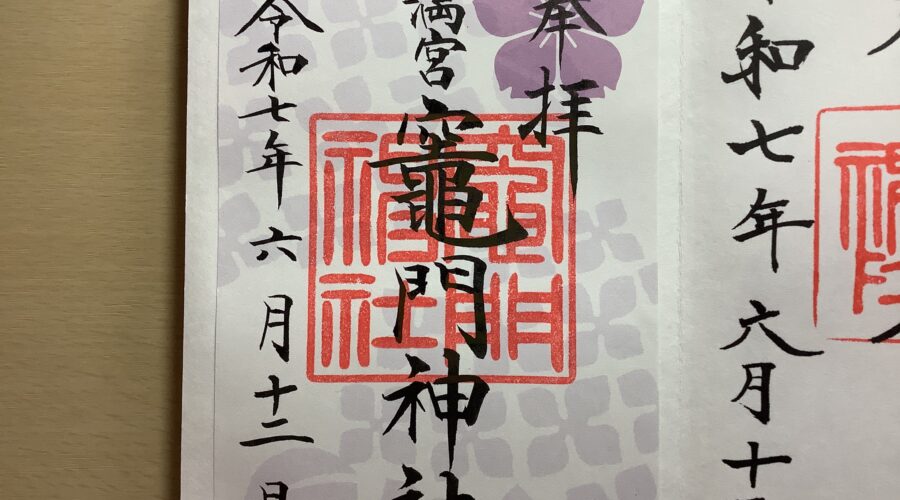 和七年六月十
奉拝
満宮
竈門神社
竈門
神社
令和七年六月十二日